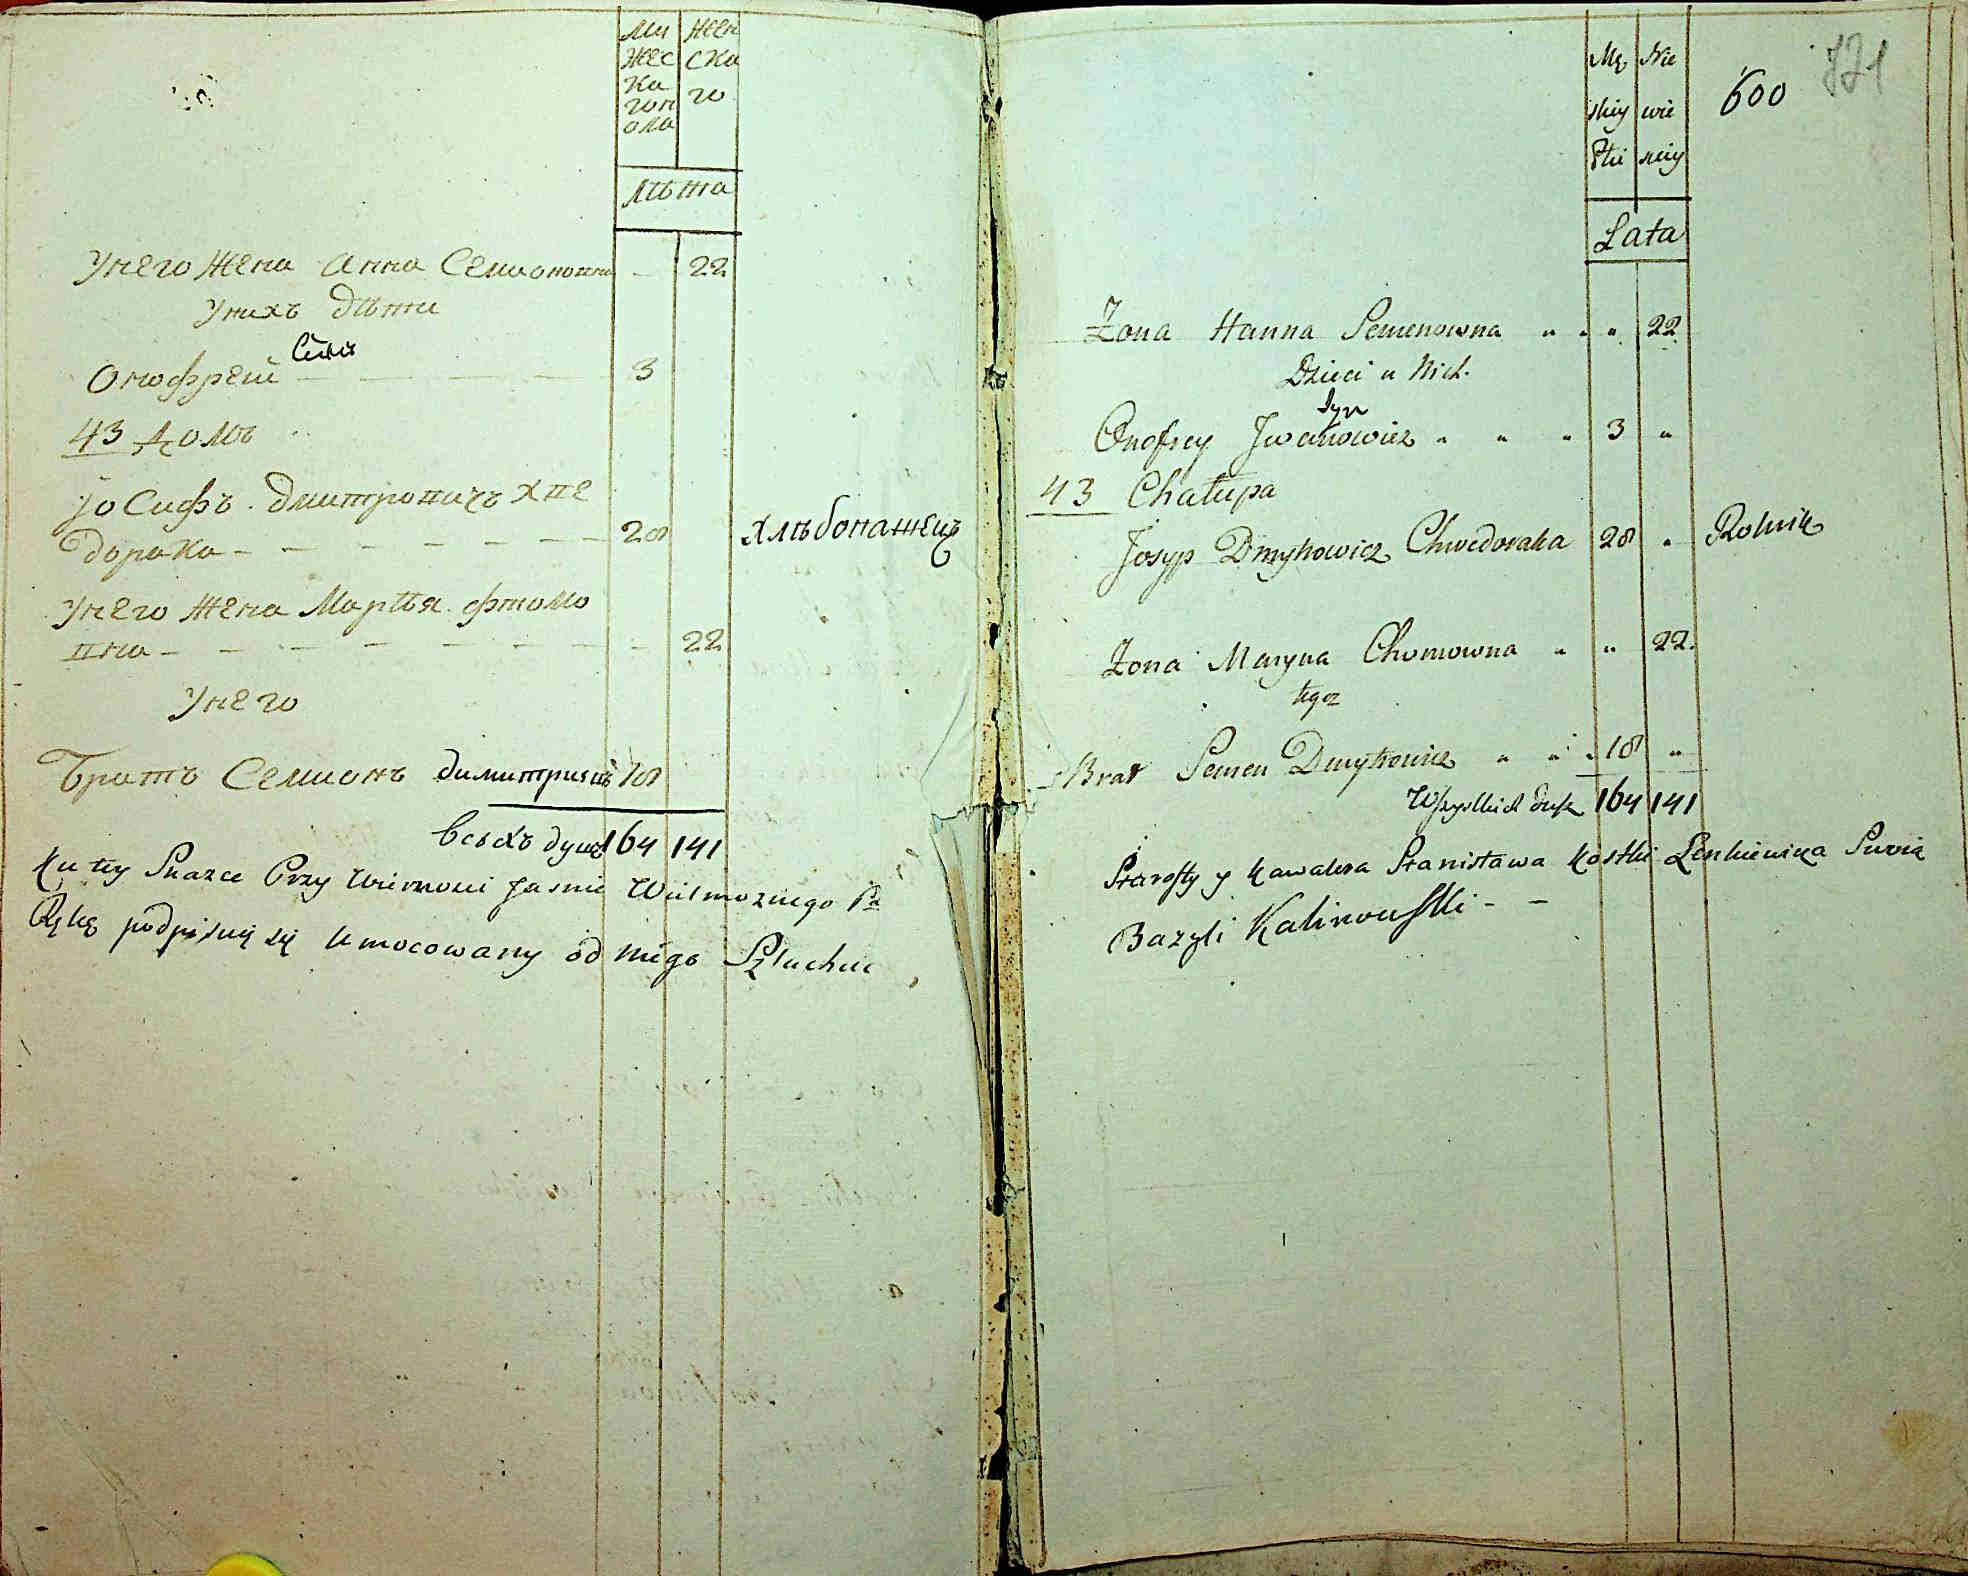 Му
жес
ка
го п
ола
Жен
ска
го
Лѣта
Унего Жена Анна Семионовна - 22
Унихъ дѣти
Сынъ
Онофрей 3
43 Домъ
Iосифъ Дмитровичъ Хве
дорака 28 хлѣбопашецъ
Унего Жена Маръя Фтомо
вна 22
Унего
Братъ Семионъ димитриевъ 18
всѣхъ душъ 164 141
Ku tey Skazce Przy Wiernoui Jasnie Wielmoznego Pa
Rękę podpisuię się Umocowany od niego Szlachcic
Mę
skiy
Płci
Nie
wie
sciy
600
721
Lata
Żona Hanna Semenowna " " " 22
Dzieci u Nich.
Syn
Onofrey Jwanowicz " " " 3 "
43 Chałupa
Josyp Dmytrowicz Chwedoraka 28 " Rolnik
Żona Maryna Chomowna " " 22.
tegoż
Brat Semen Dmytrowicz " " " 18 "
Wszystkich dusz 164 141
Starosty y Kawalera Stanisława Kostki Lenkiewicza
Bazyli Kalinowski - -